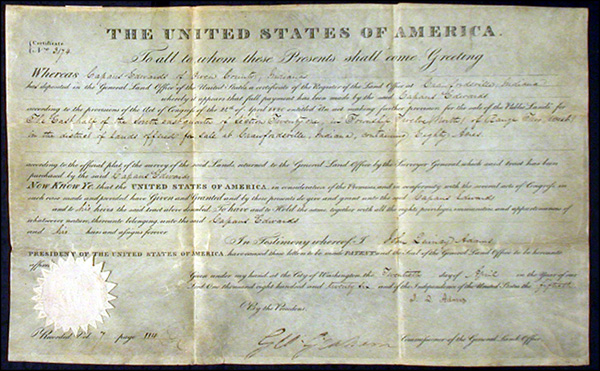 THE UNITED STATES OF AMERICA.
Certificate
No. 2174
To all to whom these Presents shall come Greeting
Whereas Capans Edwards of County, Indiana
has deposited in the General Land Office of the United States, a certificate of the Register of the Land Office at Crawfordsville, Indiana
whereby it appears that full payment has been made by the said Capans Edwards
according to the provisions of the Act of Congress of the 24th of April 1820, entitled An act making further provision for the sale of the Public Lands, for
The East half of the South east quarter of Section Twenty one, in Township Twelve, North, of Range Two, West
in the district of Lands offered for sale at Crawfordsville, Indiana, containing Eighty Acres
according to the official plat of the survey of the said Lands, returned to the General Land Office by the Surveyor General, which said tract has been
purchased by the said Capans Edwards
Now Know Ye, that the UNITED STATES OF AMERICA, in consideration of the Premises, and in conformity with the several acts of Congress in
such case made and provided, have Given and Granted and by these presents do give and grant unto the said Capans Edwards
and to his heirs the said tract above described, To have and to Hold the same, together with all the rights, privileges, immunities and appurtenances of
whatsoever nature, thereunto belonging unto the said Capans Edwards
and his heirs and assigns forever
In Testimony whereof I John Quincy Adams
PRESIDENT OF THE UNITED STATES OF AMERICA, have caused these letters to be made PATENT, and the Seal of the General Land Office to be hereunto
affixed
Given under my hand at the City of Washington the Twentieth day of April in the Year of our
Lord One thousand eight hundred and twenty six and of the Independence of the United States the fiftieth
By the President, J. Q. Adams
Recorded Vol 7 page
Geo Graham Commissioner of the General Land Office